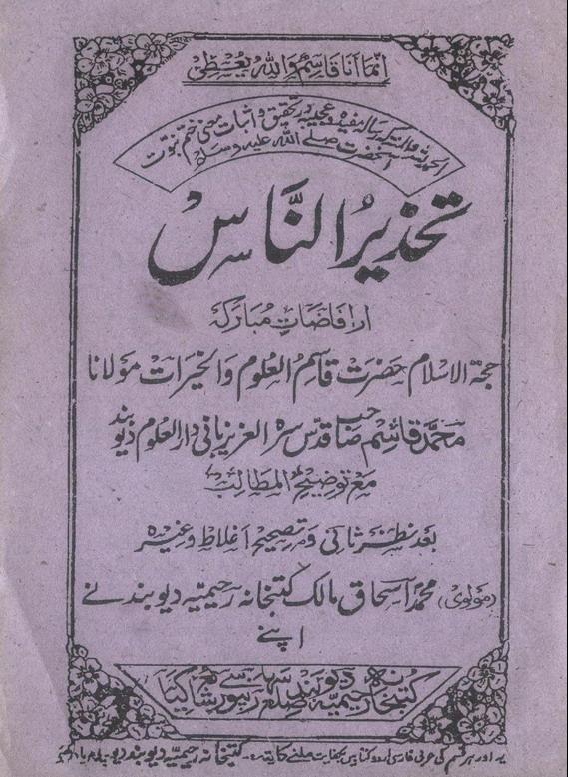 انما انا قاسم واللہ یعطی
الحمد للہ والمنۃ کہ رسالہ نفیسہ وعجیبہ در تحقیق واثبات معنی ختم نبوت
آنحضرت صلے اللہ علیہ وسلم
تحذیرُ النَّاس
از افاضات مُبارکہ
حجۃ الاسلام حضرت قاسم العلوم والخیرات مولانا
محمد قاسم صاحب قدس سرہ العزیز بانی دار العلوم دیوبند
مع توضیح المطالب
بعد نظر ثانی و تصحیح اغلاط وغیرہ
(مولوی) محمد اسحاق مالک کتبخانہ رحیمیہ دیوبند نے
اپنے
کتبخانہ رحیمیہ دیوبند ضلع سہارنپور سے شائع کیا
یہ اور ہر قسم کی عربی فارسی اردو کتابیں بکفایت ملنے کا پتہ۔ کتبخانہ رحیمیہ دیوبند